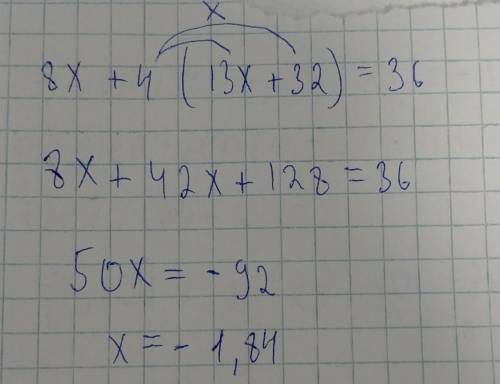 x
8x + 4 (13x + 32) = 36
8x + 42x + 128 = 36
50x = - 92
x = - 1,84